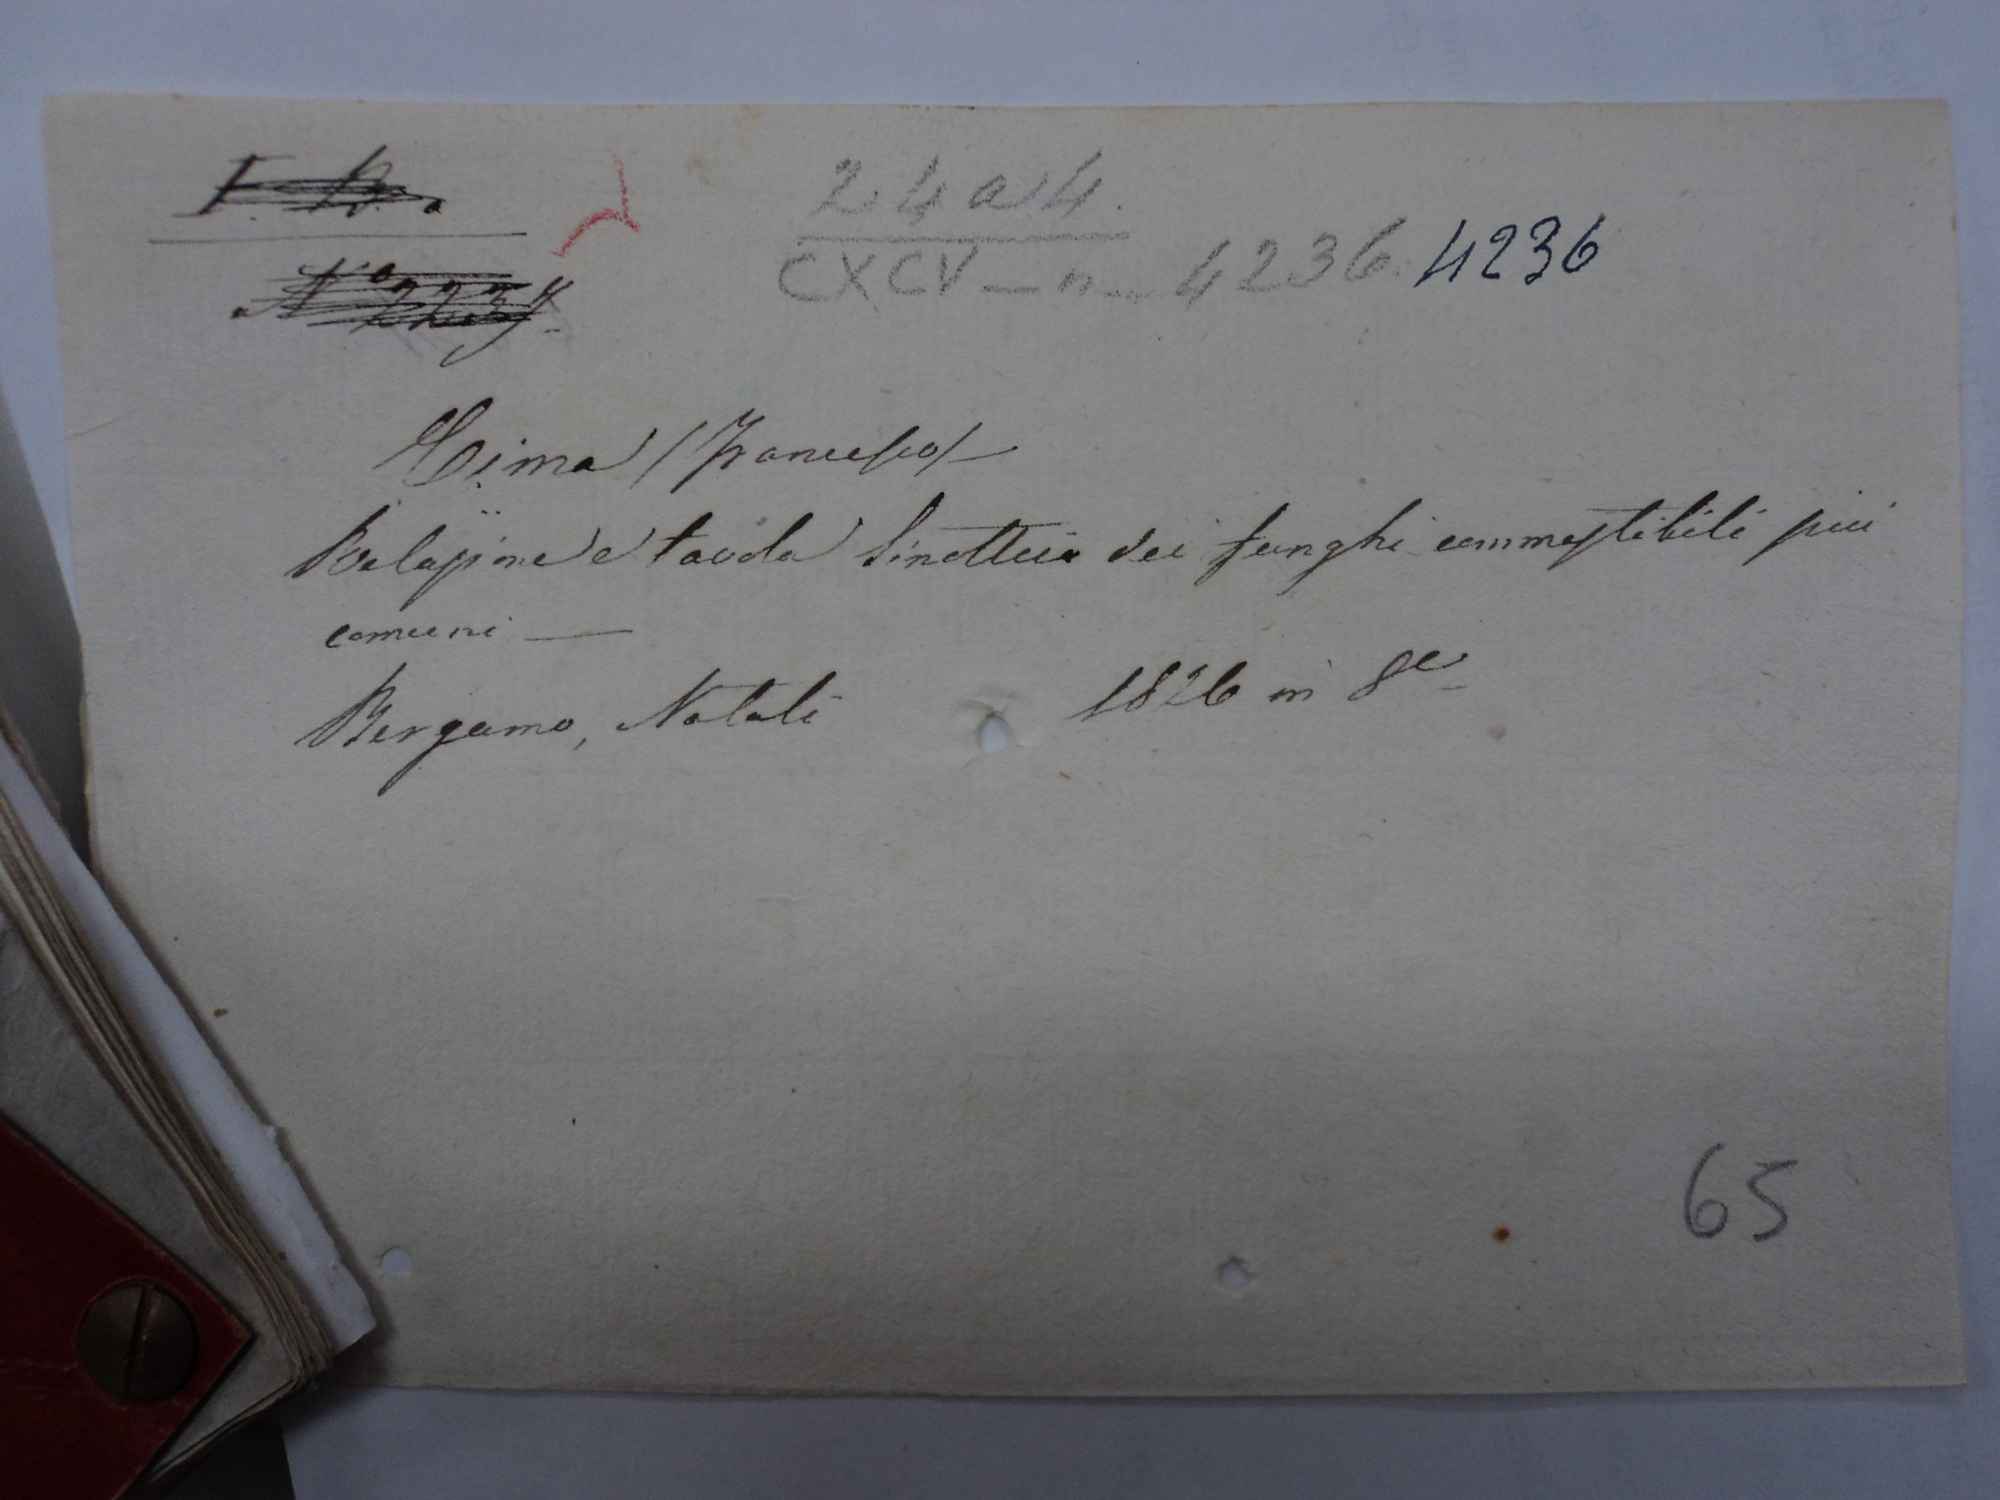 24a4.
CXCV - n - 4236. 4236
Cima (Francesco)
Relazione e tavola sinottica dei funghi commestibili più
comuni —
Bergamo, Natali 1826 in 8°
65